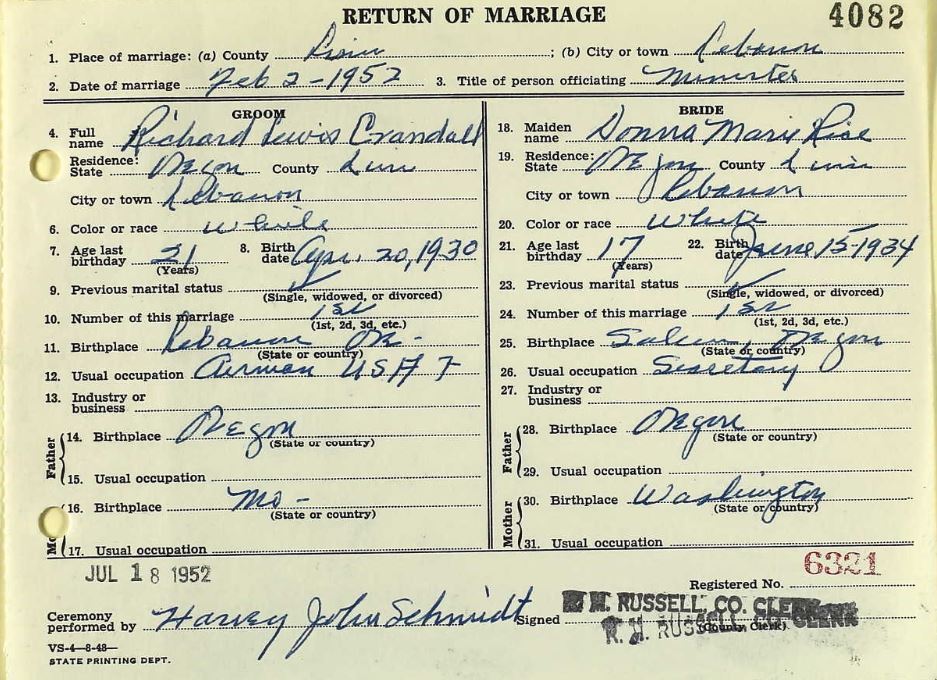 RETURN OF MARRIAGE
4082
1. Place of marriage: (a) County Linn ; (b) City or town Lebanon
2. Date of marriage Feb 2-1952 3. Title of person officiating Minister
GROOM
4. Full name Richard Lewis Crandall
Residence: State Oregon County Linn
City or town Lebanon
6. Color or race White
7. Age last birthday 21 (Years) 8. Birth date Apr. 20, 1930
9. Previous marital status ✓ (Single, widowed, or divorced)
10. Number of this marriage 1st (1st, 2d, 3d, etc.)
11. Birthplace Lebanon Ore - (State or country)
12. Usual occupation Airman USAF
13. Industry or business
Father
14. Birthplace Oregon (State or country)
15. Usual occupation
16. Birthplace Mo- (State or country)
17. Usual occupation
BRIDE
18. Maiden name Donna Marie
19. Residence: State Oregon County Linn
City or town Lebanon
20. Color or race White
21. Age last birthday 17 (Years) 22. Birth date June 15-1934
23. Previous marital status ✓ (Single, widowed, or divorced)
24. Number of this marriage 1st (1st, 2d, 3d, etc.)
25. Birthplace Salem, Oregon (State or country)
26. Usual occupation Secretary
27. Industry or business
Father
28. Birthplace Oregon (State or country)
29. Usual occupation
Mother
30. Birthplace Washington (State or country)
31. Usual occupation
JUL 18 1952
6321
Registered No.
Ceremony performed by Harvey John Schmidt Signed R. M. RUSSELL, CO. CLERK
R. M. RUSSELL, CO. CLERK
(County Clerk)
VS-4-8-48-
STATE PRINTING DEPT.